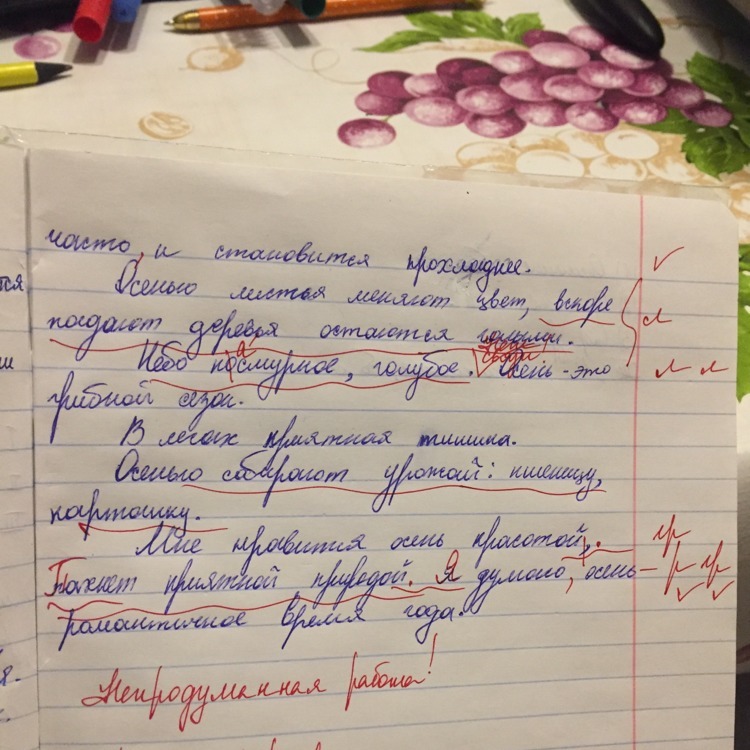 часто, и становится прохладнее.
Осенью листья меняют цвет, вскоре
падают деревья остаются
Небо посмурное, голубое. Осень - это
грибной сезон.
В лесах приятная тишина.
Осенью собирают урожай: пшеницу,
картошку.
Мне нравится осень красотой,.
Пахнет приятной природой. Я думаю, осень -
романтичное время года.
Непродуманная работа!